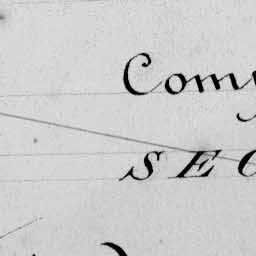 Comp
SEC